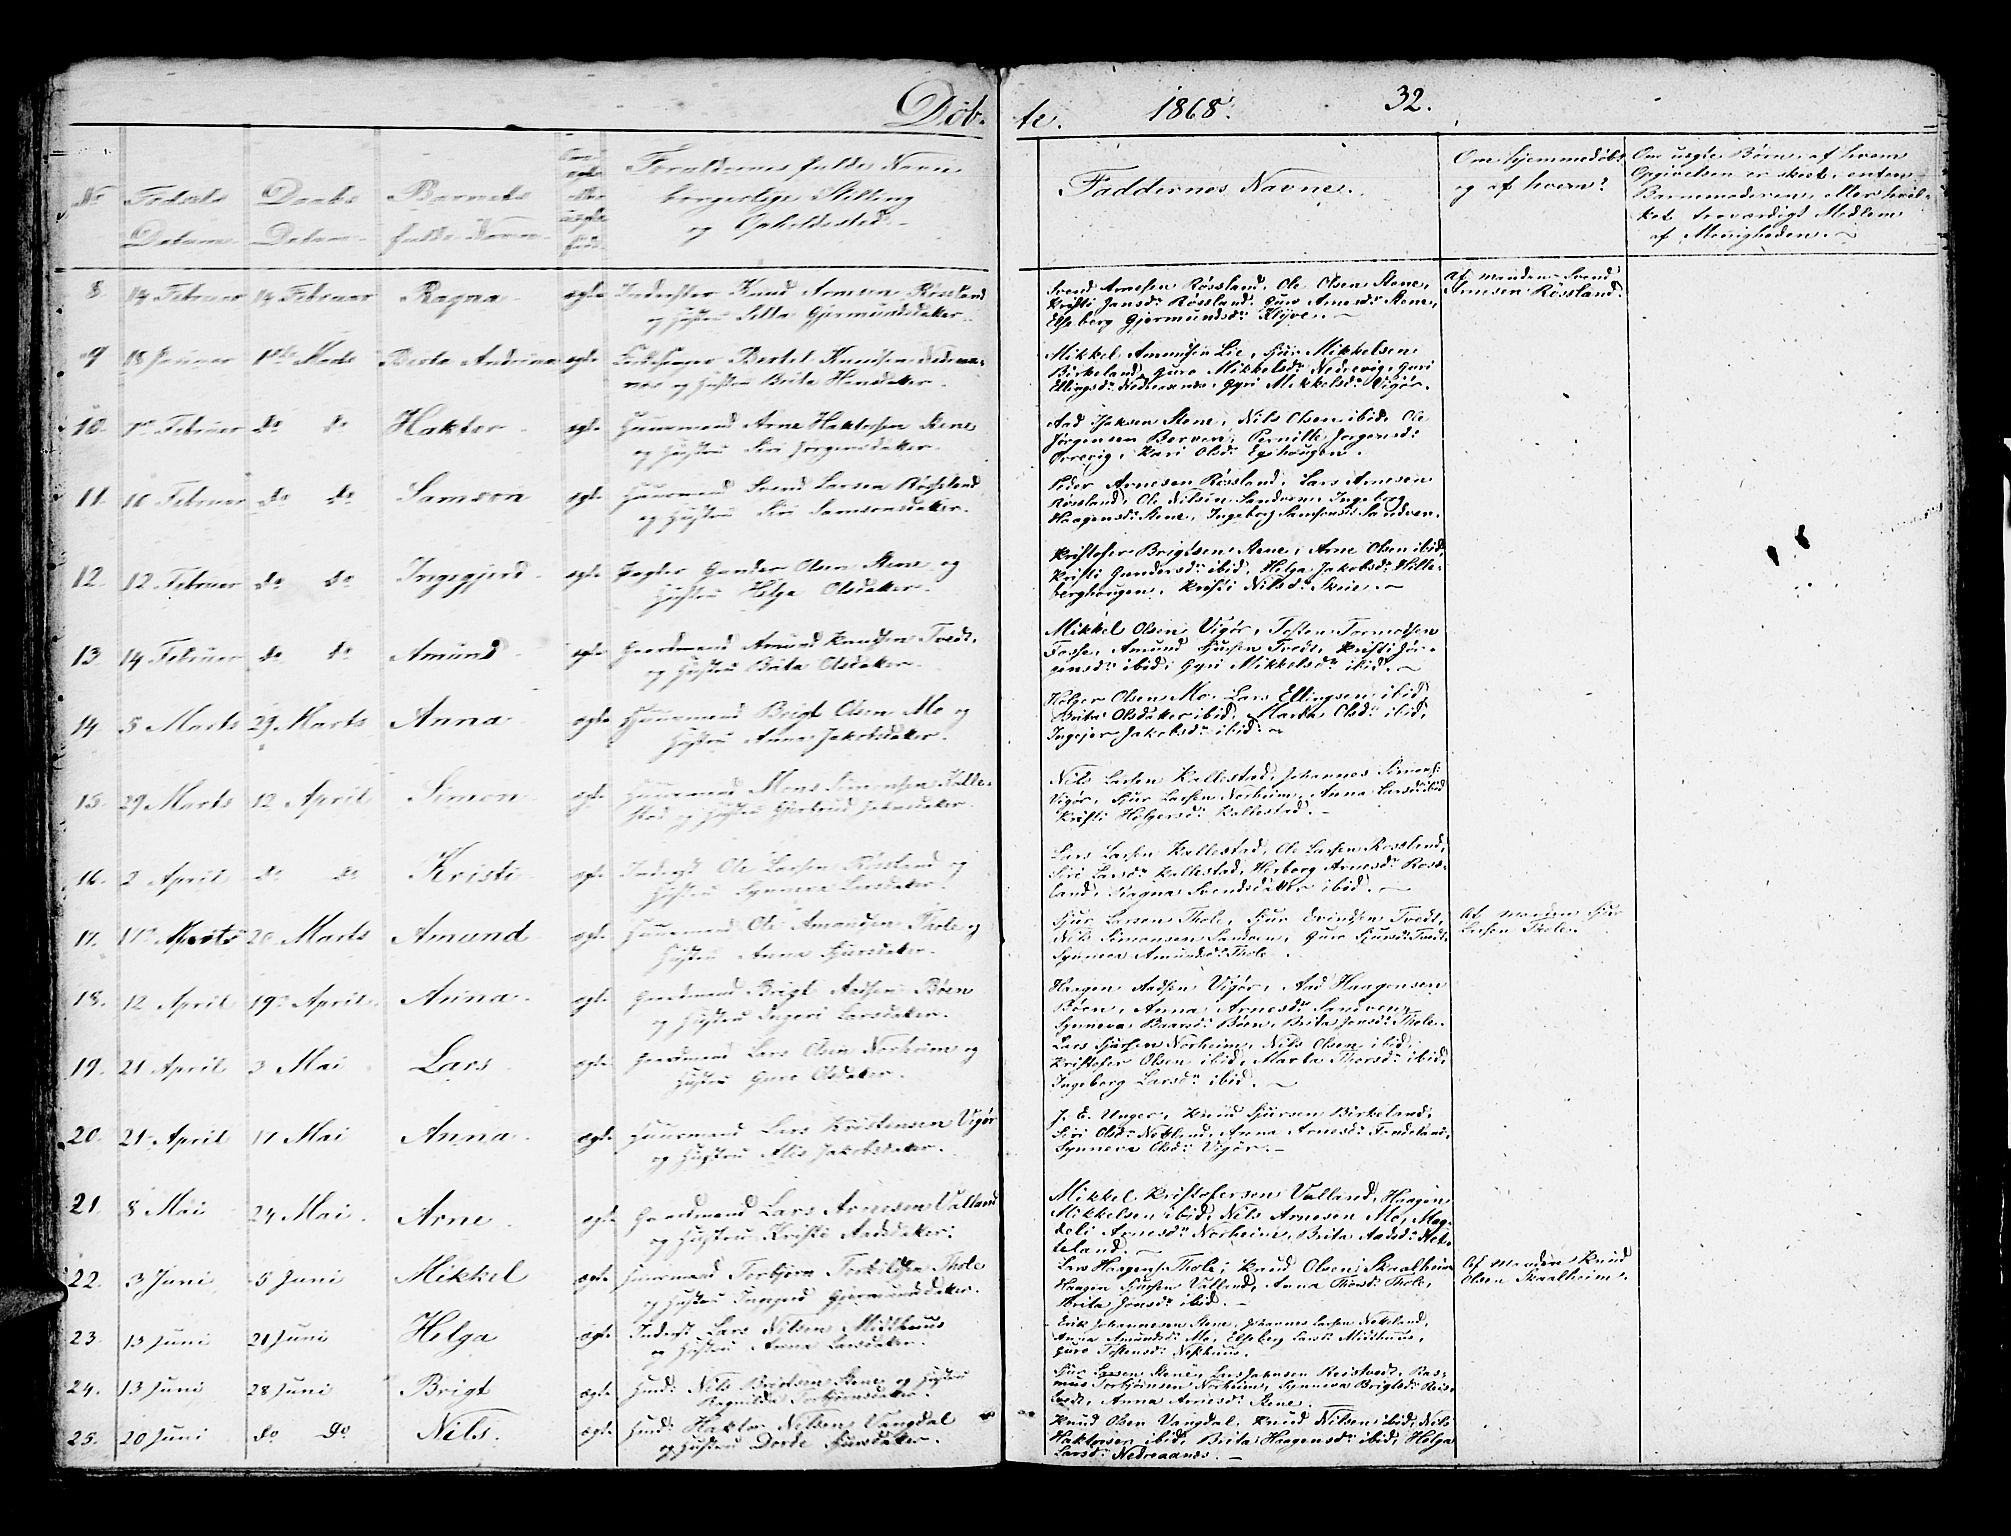 Døb-
te.
1868.
32.
No
Fødsels Datum
Daabs Datum
Barnets fulde Navn
Om ægte eller uægte født
Forældrenes fulde Navn borgerlige Stilling og Opholdssted
Faddernes Navne
Om hjemmedøbt og af hvem?
Om uægte Børn, af hvem Opgivelsen er skeet, enten Barnemoderen, eller hvilket troværdigt Medlem af Menigheden.
8. 14 Februar 14 Februar Ragna ægte Inderster Knud Arnesen Røssland
og Hustru Gjermundsdatter
Svend Arnesen Røssland, Ole Olsen Stene,
Kristi Jansd: Røssland, Guro Arnesd: Stene,
Elseberg Gjermundsd: Klyve.
Af manden Svend
Arnesen Røssland.
9 18 Januar 1ste Marts Berta Andrina ægte Bertel Knudsen Nedreaa-
næs og Hustru Brita Hansdatter.
Mikkel Amundsen Lie, Sjur Mikkelsen
Birkeland, Guro Mikkelsd: Nedrevig, Guri
Ellingsd: Nedreaanæs, Gyri Mikkelsd: Vigør.
10. 7de Februar do do Haktor ægte Huusmand Arne Haktorsen Stene
og Hustru Siri Jørgensdatter.
Aad Isaksen Stene, Nils Olsen ibid, Ole
Jørgensen Berven, Pernille Jørgensd:
Kari Olsd:
11. 16 Februar do do Samson ægte Huusmand Svend Larsen Røssland
og Hustru Siri Samsonsdatter.
Peder Arnesen Røssland, Lars Arnesen
Røssland, Ole Nilsen Sandven, Ingeborg
Haagensd: Stene, Ingeborg Samsonsd: Sandven.
12. 12 Februar do do Ingegjerd ægte Gunder Olsen Stene og
Hustru Helga Olsdatter.
Kristofer Brigtsen Stene, Arne Olsen ibid,
Kristi Gundersd: ibid, Helga Jakobsd: Stille-
berghougen, Kristi Nilsd: Skeie.
13. 14 Februar do do Amund ægte Gaardmand Amund Knudsen Tvedt,
og Hustru Brita Olsdatter.
Mikkel Olsen Vigør, Tosten Tormodsen
Fosse, Amund Sjursen Tvedt, Kristi Jør-
gensd: ibid, Gyri Mikkelsd: ibid.
14. 5 Marts 29 Marts Anna ægte Huusmand Brigt Olsen Mo og
Hustru Anna Jakobsdatter.
Holger Olsen Mo, Lars Ellingsen ibid,
Brita Olsdatter ibid, Marta Olsd: ibid,
Ingejer Jakobsd: ibid.
15. 29 Marts 12 April Simon ægte Huusmand Mons Simonsen Kalle-
stad og Hustru Gjertrud Johnsdatter.
Nils Larsen Kallestad, Johannes Simons:
Vigør, Sjur Larsen Norheim, Anna Larsd: ibid
Kristi Holgersd: Kallestad.
16. 2 April do do Kristi ægte Inderst Ole Larsen Røssland og
Hustru Synneva Larsdatter.
Lars Larsen Kallestad, Ole Larsen Røssland,
Siri Larsd: Kallestad, Herborg Arnesd: Røss-
land, Ragna Svendsdatter ibid.
17. 17de Marts 20 Marts Amund ægte Huusmand Ole Amundsen Thole og
Hustru Anna Sjursdatter.
Sjur Larsen Thole, Sjur Evindsen Tvedt,
Nils Simonsen Sandven, Guro Sjursd: Tvedt,
Synneva Amundsd: Thole.
Af manden Sjur
Larsen Thole.
18. 12 April 19de April Anna ægte Gaardmand Brigt Aadsen Bøen
og Hustru Ingeri Larsdatter.
Haagen Aadsen Vigør, Aad Haagensen
Bøen, Anna Arnesd: Sandven,
Synneva Baarsd: Bøen, Brita Jonsd: Thole.
19. 21 April 3 Mai Lars ægte Gaardmand Lars Olsen Norheim og
Hustru Guro Olsdatter.
Lars Sjursen Norheim, Nils Olsen ibid,
Kristofer Olsen ibid, Marta Thorsd: ibid,
Ingeborg Larsd: ibid.
20. 21 April 17 Mai Anna ægte Huusmand Lars Kristensen Vigør
og Hustru Alis Jakobsdatter.
J. E. Unger, Knud Sjursen Birkeland,
Siri Olsd: Netland, Anna Arnesd:
Synneva Olsd: Vigør.
21. 8 Mai 24 Mai Arne ægte Gaardmand Lars Arnesen Valland
og Hustru Kristi Aadsdatter.
Mikkel Kristofersen Valland, Haagen
Mikkelsen ibid, Nils Arnesen Mo, Mag-
deli Arnesd: Norheim, Brita Aadsd: Net-
teland.
22. 3 Juni 5 Juni Mikkel ægte Huusmand Torbjørn Torkilsen Thole
og Hustru Ingejerd Gjermundsdatter.
Lars Haagens: Thole, Knud Olsen Skaalheim
Haagen Sjursen Valland, Anna Thorsd: Thole,
Brita Jonsd: ibid.
Af Manden Knud
Olsen Skaalheim.
23. 13 Juni 21 Juni Helga ægte Inderst Lars Nilsen Midthuus
og Hustru Anna Larsdatter.
Erik Johannesen Stene, Johannes Larsen Netteland,
Anna Amundsd: Mo, Elseberg Larsd: Midthuus,
Guro Tostensd: Nesthuus.
24. 13 Juni 28 Juni Brigt ægte Husd: Nils Brigtsen Stene og Hustru
Ragnilda Torbjørnsdatter.
Sjur Larsen Stene, Lars Johnsen Reistvedt, Ras-
mus Torbjørnsen Norheim, Synneva Brigtsd: Reis-
tvedt, Anna Arnesd: Stene.
25. 20 Juni do do Nils. ægte Husd: Haktor Nilsen Vangdal
og Hustru Dorde Sjursdatter.
Knud Olsen Vangdal, Knud Nilsen ibid, Nils
Haktorsen ibid, Brita Haagensd: ibid, Helga
Larsd: Nedreaanæs.